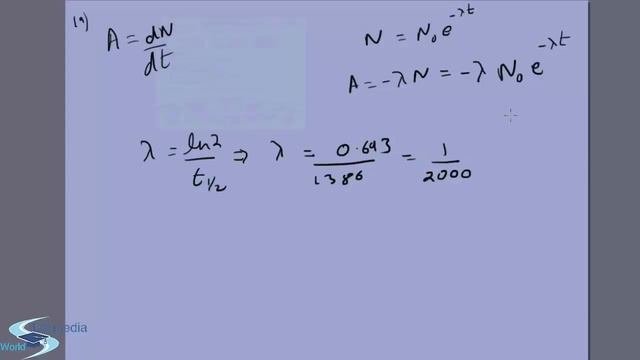 19)
A = dN/dt
N = N₀ e^{-λt}
A = -λN = -λ N₀ e^{-λt}
λ = ln2/t_{1/2} ⇒ λ = 0.693/1386 = 1/2000
World